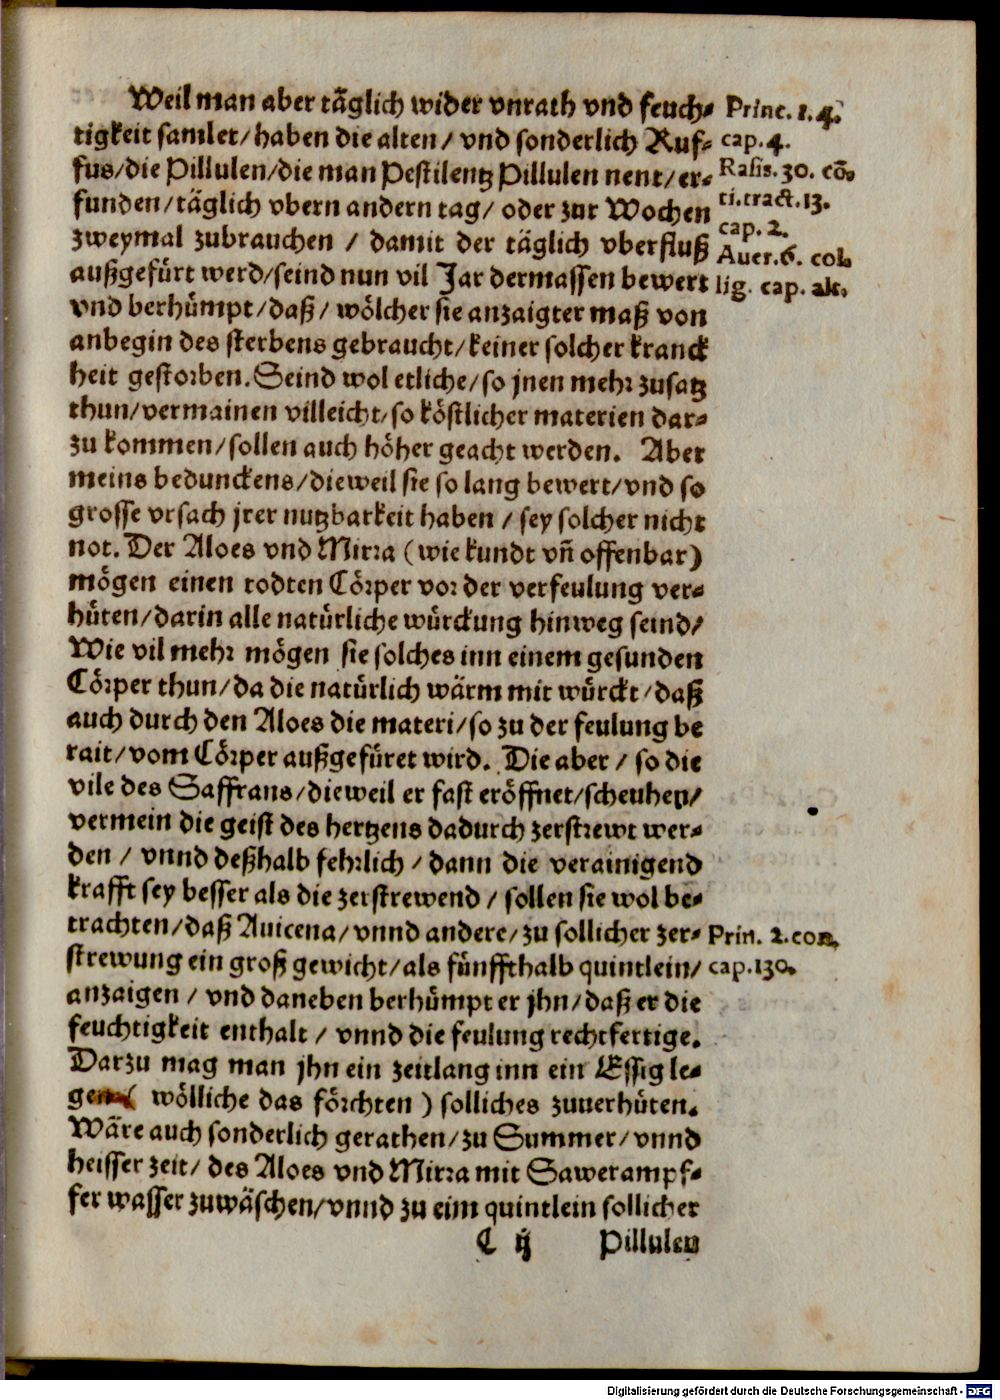 Weil man aber täglich wider vnrath vnd feuch-
tigkeit samlet/haben die alten/ vnd sonderlich Ruf-
fus/die Pillulen/die man Pestilentz Pillulen nent/er-
funden/täglich vbern andern tag/ oder zur Wochen
zweymal zubrauchen / damit der täglich vberfluß
außgefürt werd/seind nun vil Jar dermassen bewert
vnd berhümpt/daß/ wölcher sie anzaigter maß von
anbegin des sterbens gebraucht/keiner solcher kranck
heit gestorben. Seind wol etliche/so jnen mehr zusatz
thun/vermainen villeicht/so köstlicher materien dar-
zu kommen/sollen auch höher geacht werden. Aber
meins bedunckens/dieweil sie so lang bewert/vnd so
grosse vrsach jrer nutzbarkeit haben / sey solcher nicht
not. Der Aloes vnd Mirra (wie kundt vñ offenbar)
mögen einen todten Cörper vor der verfeulung ver-
hüten/darin alle natürliche würckung hinweg seind/
Wie vil mehr mögen sie solches inn einem gesunden
Cörper thun/da die natürlich wärm mit würckt/daß
auch durch den Aloes die materi/so zu der feulung be
rait/vom Cörper außgefüret wird. Die aber / so die
vile des Saffrans/dieweil er fast eröffnet/scheuhen/
vermein die geist des hertzens dadurch zerstrewt wer-
den / vnnd deßhalb fehrlich / dann die verainigend
krafft sey besser als die zerstrewend / sollen sie wol be-
trachten/daß Auicena/vnnd andere/zu sollicher zer-
strewung ein groß gewicht/als fünffthalb quintlein/
anzaigen / vnd daneben berhümpt er jhn/daß er die
feuchtigkeit enthalt / vnnd die feulung rechtfertige.
Darzu mag man jhn ein zeitlang inn ein Essig le-
gen ( wölliche das förchten ) solliches zuuerhüten.
Wäre auch sonderlich gerathen/zu Summer/vnnd
heisser zeit/ des Aloes vnd Mirra mit Sawerampf-
fer wasser zuwäschen/vnnd zu eim quintlein sollicher
C ij Pillulen
Princ. 1. 4.
cap. 4.
Rasis. 30. cō-
ti. tract. 13.
cap. 2.
Auer. 6. col-
lig. cap. alt.
Prin. 2. con.
cap. 130.
Digitalisierung gefördert durch die Deutsche Forschungsgemeinschaft - DFG